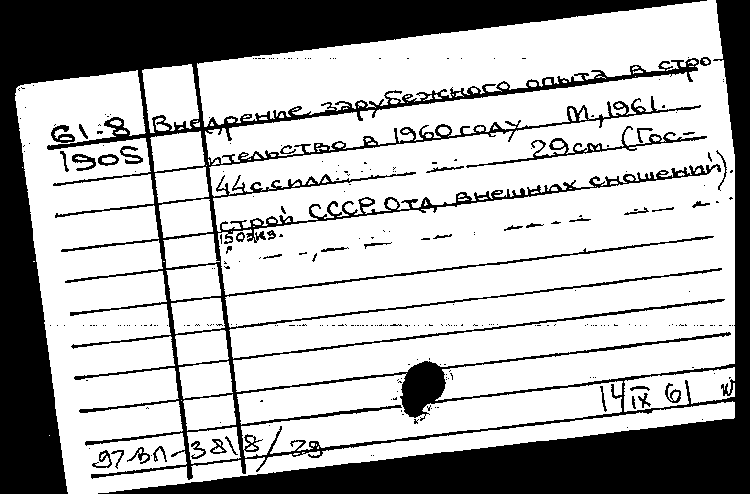 61-8 Внедрение зарубежного опыта в стро-
1905 ительство в 1960 году. М., 1961.
44 с. с илл. 29 см. (Гос-
строй СССР. Отд. внешних сношений).
150 экз.
14 IX 61
97-ВП-3818/29